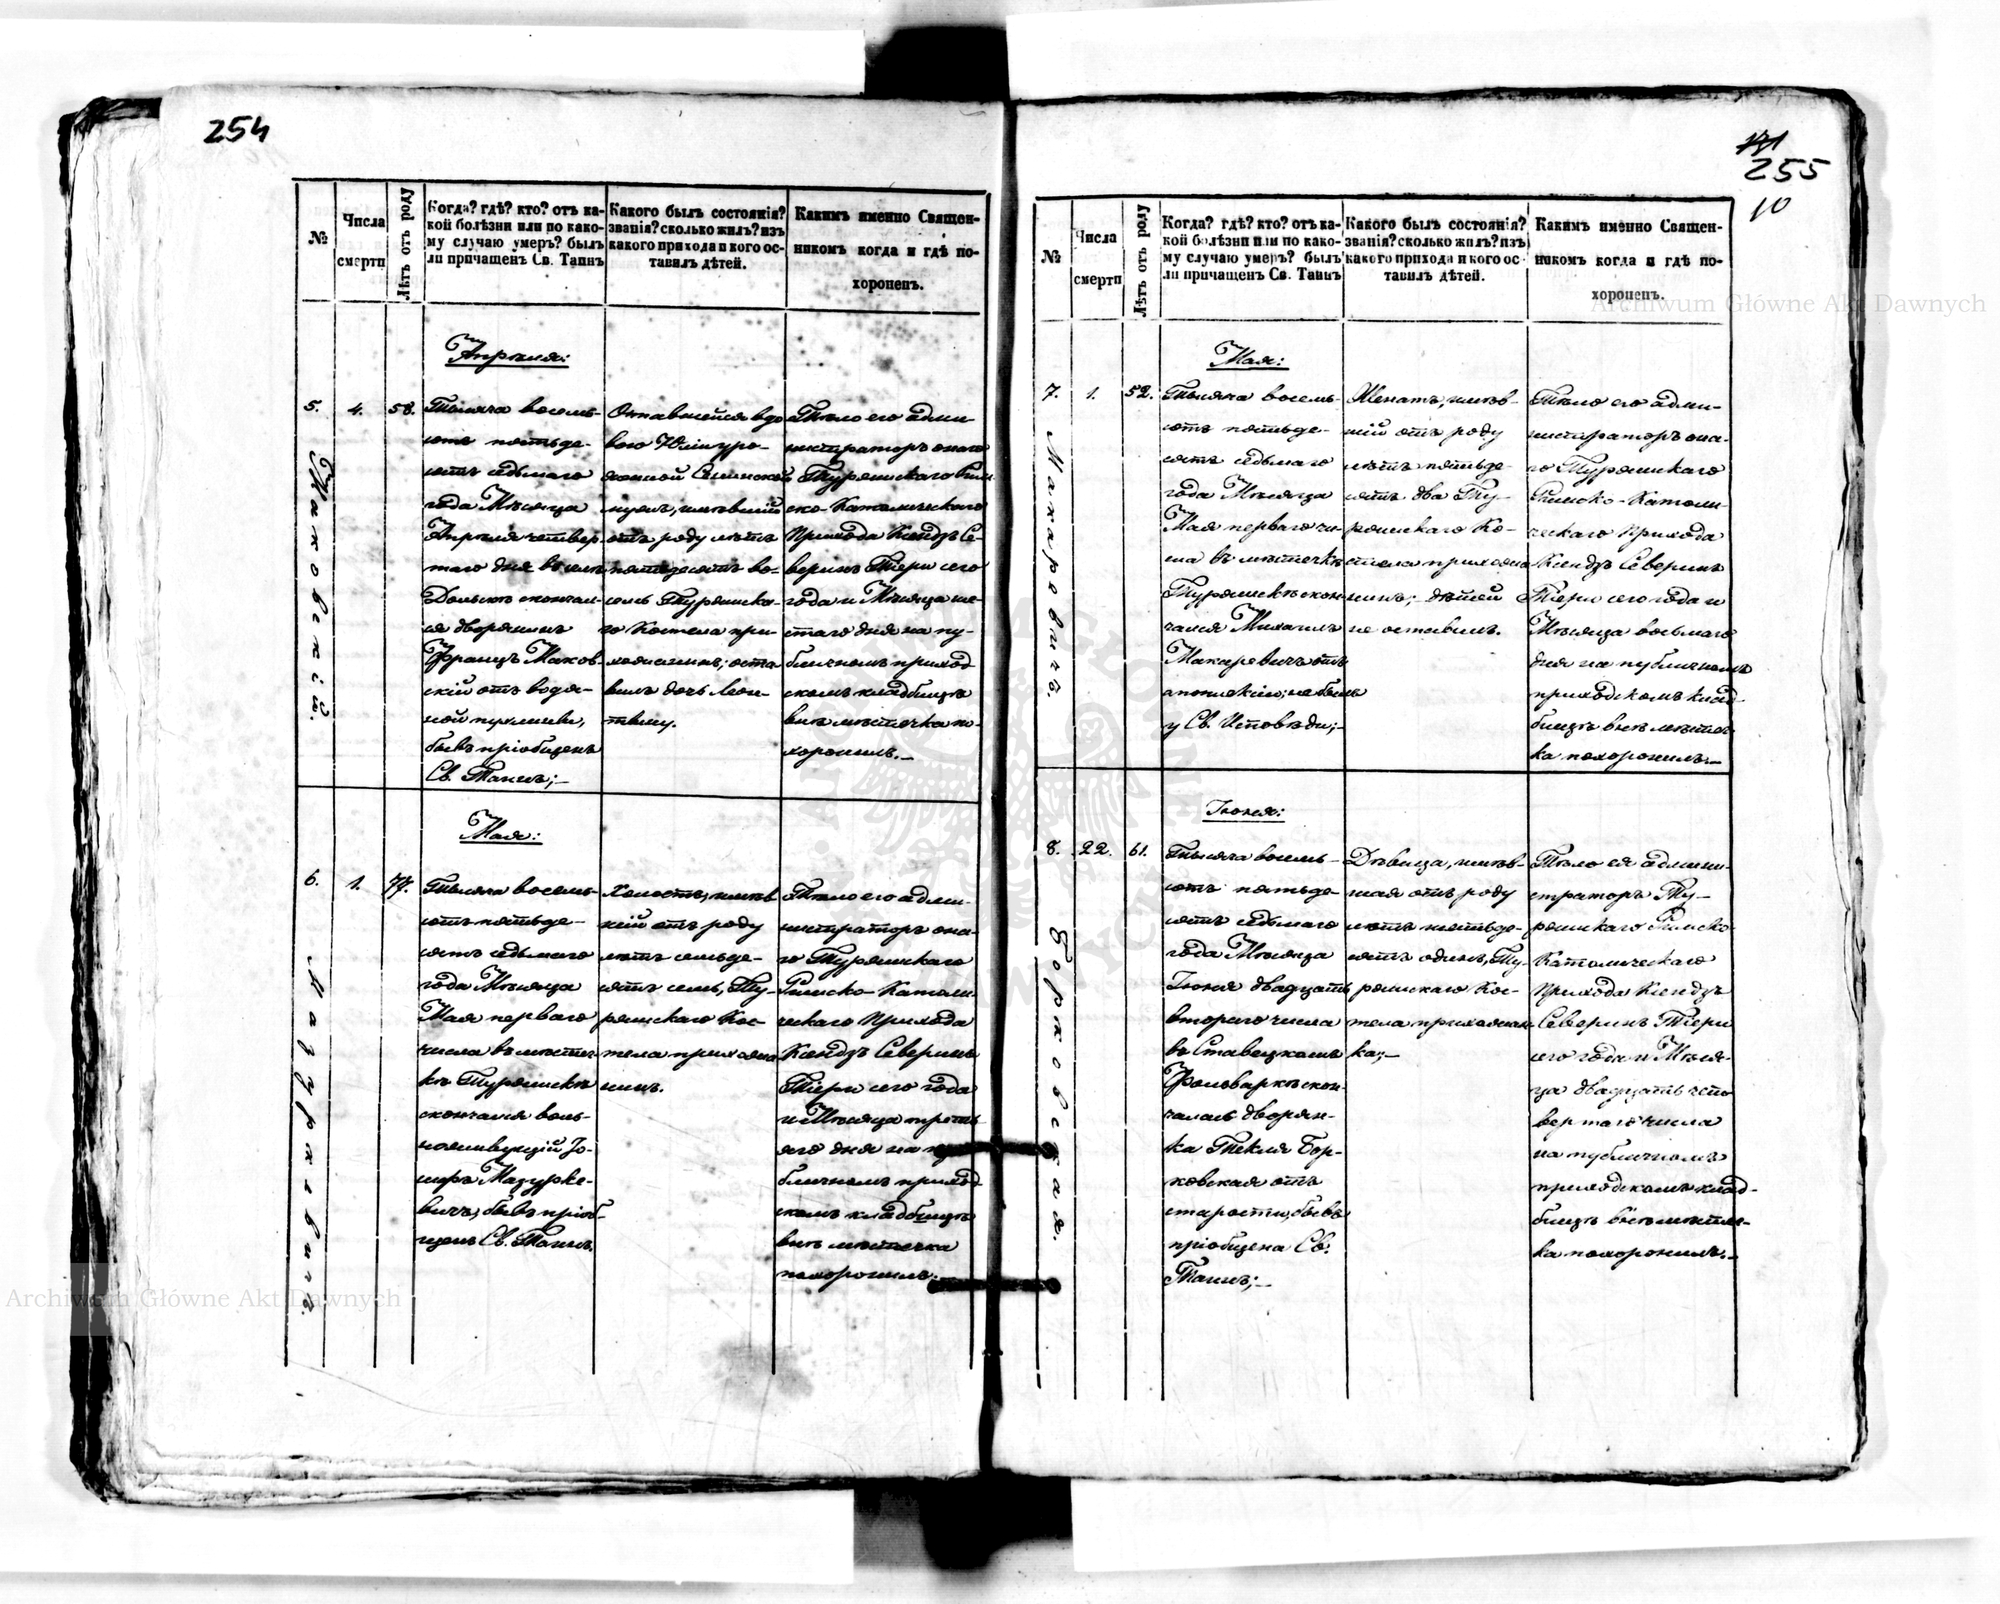 254
№
Числа
смерти
Лѣтъ отъ роду
Когда? гдѣ? кто? отъ ка-
кой болѣзни или по како-
му случаю умеръ? былъ
ли причащенъ Св. Таинъ
Какого былъ состоянія?
званія? сколько жилъ? изъ
какого прихода и кого ос-
тавилъ дѣтей.
Какимъ именно Священ-
никомъ когда и гдѣ по-
хороненъ.
Апрѣля:
5.
Маковскій.
4.
58.
Тысяча восемь-
сотъ пятьде-
сятъ седьмаго
года Мѣсяца
Апрѣля четвер-
таго дня въ селѣ
Дольскѣ скончал-
ся дворянинъ
Францъ Маков-
скій отъ водя-
ной пухлины,
бывъ пріобщенъ
Св. Таинъ;—
Оставшейся вдо
вою
отъ роду лѣтъ
пятьдесятъ во-
семь Турійска-
го Костела при-
хожанинъ; оста
вилъ дочь Леон-
тину.
Тѣло его адми-
нистраторъ онаго
Турійскаго Рим-
ско-Католическаго
Прихода Ксендзъ Се-
веринъ Тіери сего
года и Мѣсяца ше-
стаго дня на пу-
бличномъ приход
скомъ кладбищѣ
внѣ мѣстечка по-
хоронилъ.—
Мая:
6.
Мазуркевичъ.
1.
77.
Тысяча восемь-
сотъ пятьде-
сятъ седьмаго
года Мѣсяца
Мая перваго
числа въ мѣстеч
кѣ Турійскѣ
скончался воль-
ноживущій Іо-
сифъ Мазурке-
вичъ, бывъ пріоб-
щенъ Св. Таинъ.
Холостъ, имѣв
шій отъ роду
лѣтъ семьде-
сятъ семь, Ту-
рійскаго Кос-
тела прихожа
нинъ.
Тѣло его адми-
нистраторъ она-
го Турійскаго
Римско-Католи-
ческаго Прихода
Ксендзъ Северинъ
Тіери сего года
и Мѣсяца треть
яго дня на пу
бличномъ приход
скомъ кладбищѣ
внѣ мѣстечка
похоронилъ.—
255
10
№
Числа
смерти
Лѣтъ отъ роду
Когда? гдѣ? кто? отъ ка-
кой болѣзни или по како-
му случаю умеръ? былъ
ли причащенъ Св. Таинъ
Какого былъ состоянія?
званія? сколько жилъ? изъ
какого прихода и кого ос-
тавилъ дѣтей.
Какимъ именно Священ-
никомъ когда и гдѣ по-
хороненъ.
Мая:
7.
Макаревичъ.
1.
52.
Тысяча восемь-
сотъ пятьде-
сятъ седьмаго
года Мѣсяца
Мая перваго чи-
сла въ мѣстечкѣ
Турійскѣ скон-
чался Михаилъ
Макаревичъ отъ
апоплексіи; не былъ
у Св. Исповѣди;—
Женатъ, имѣв-
шій отъ роду
лѣтъ пятьде-
сятъ два Ту-
рійскаго Ко-
стела прихожа
нинъ; дѣтей
не оставилъ.
Тѣло его адми-
нистраторъ она-
го Турійскаго
Римско-Католи-
ческаго Прихода
Ксендзъ Северинъ
Тіери сего года и
Мѣсяца восьмаго
дня на публичномъ
приходскомъ клад
бищѣ внѣ мѣстеч
ка похоронилъ.—
Іюня:
8.
Борковская.
22.
61.
Тысяча восемь-
сотъ пятьде-
сятъ седьмаго
года Мѣсяца
Іюня двадцать
втораго числа
въ Ставецкомъ
Фольваркѣ скон-
чалась дворян-
ка Текля Бор-
ковская отъ
старости, бывъ
пріобщена Св.
Таинъ;—
Дѣвица, имѣв-
шая отъ роду
лѣтъ шестьде-
сятъ одинъ, Ту-
рійскаго Кос-
тела прихожан
ка;—
Тѣло ея админи-
страторъ Ту-
рійскаго Римско
Католическаго
Прихода Ксендзъ
Северинъ Тіери
сего года и Мѣся-
ца двадцать чет
вертаго числа
на публичномъ
приходскомъ клад-
бищѣ внѣ мѣстеч-
ка похоронилъ.—
Archiwum Główne Akt Dawnych
Archiwum Główne Akt Dawnych